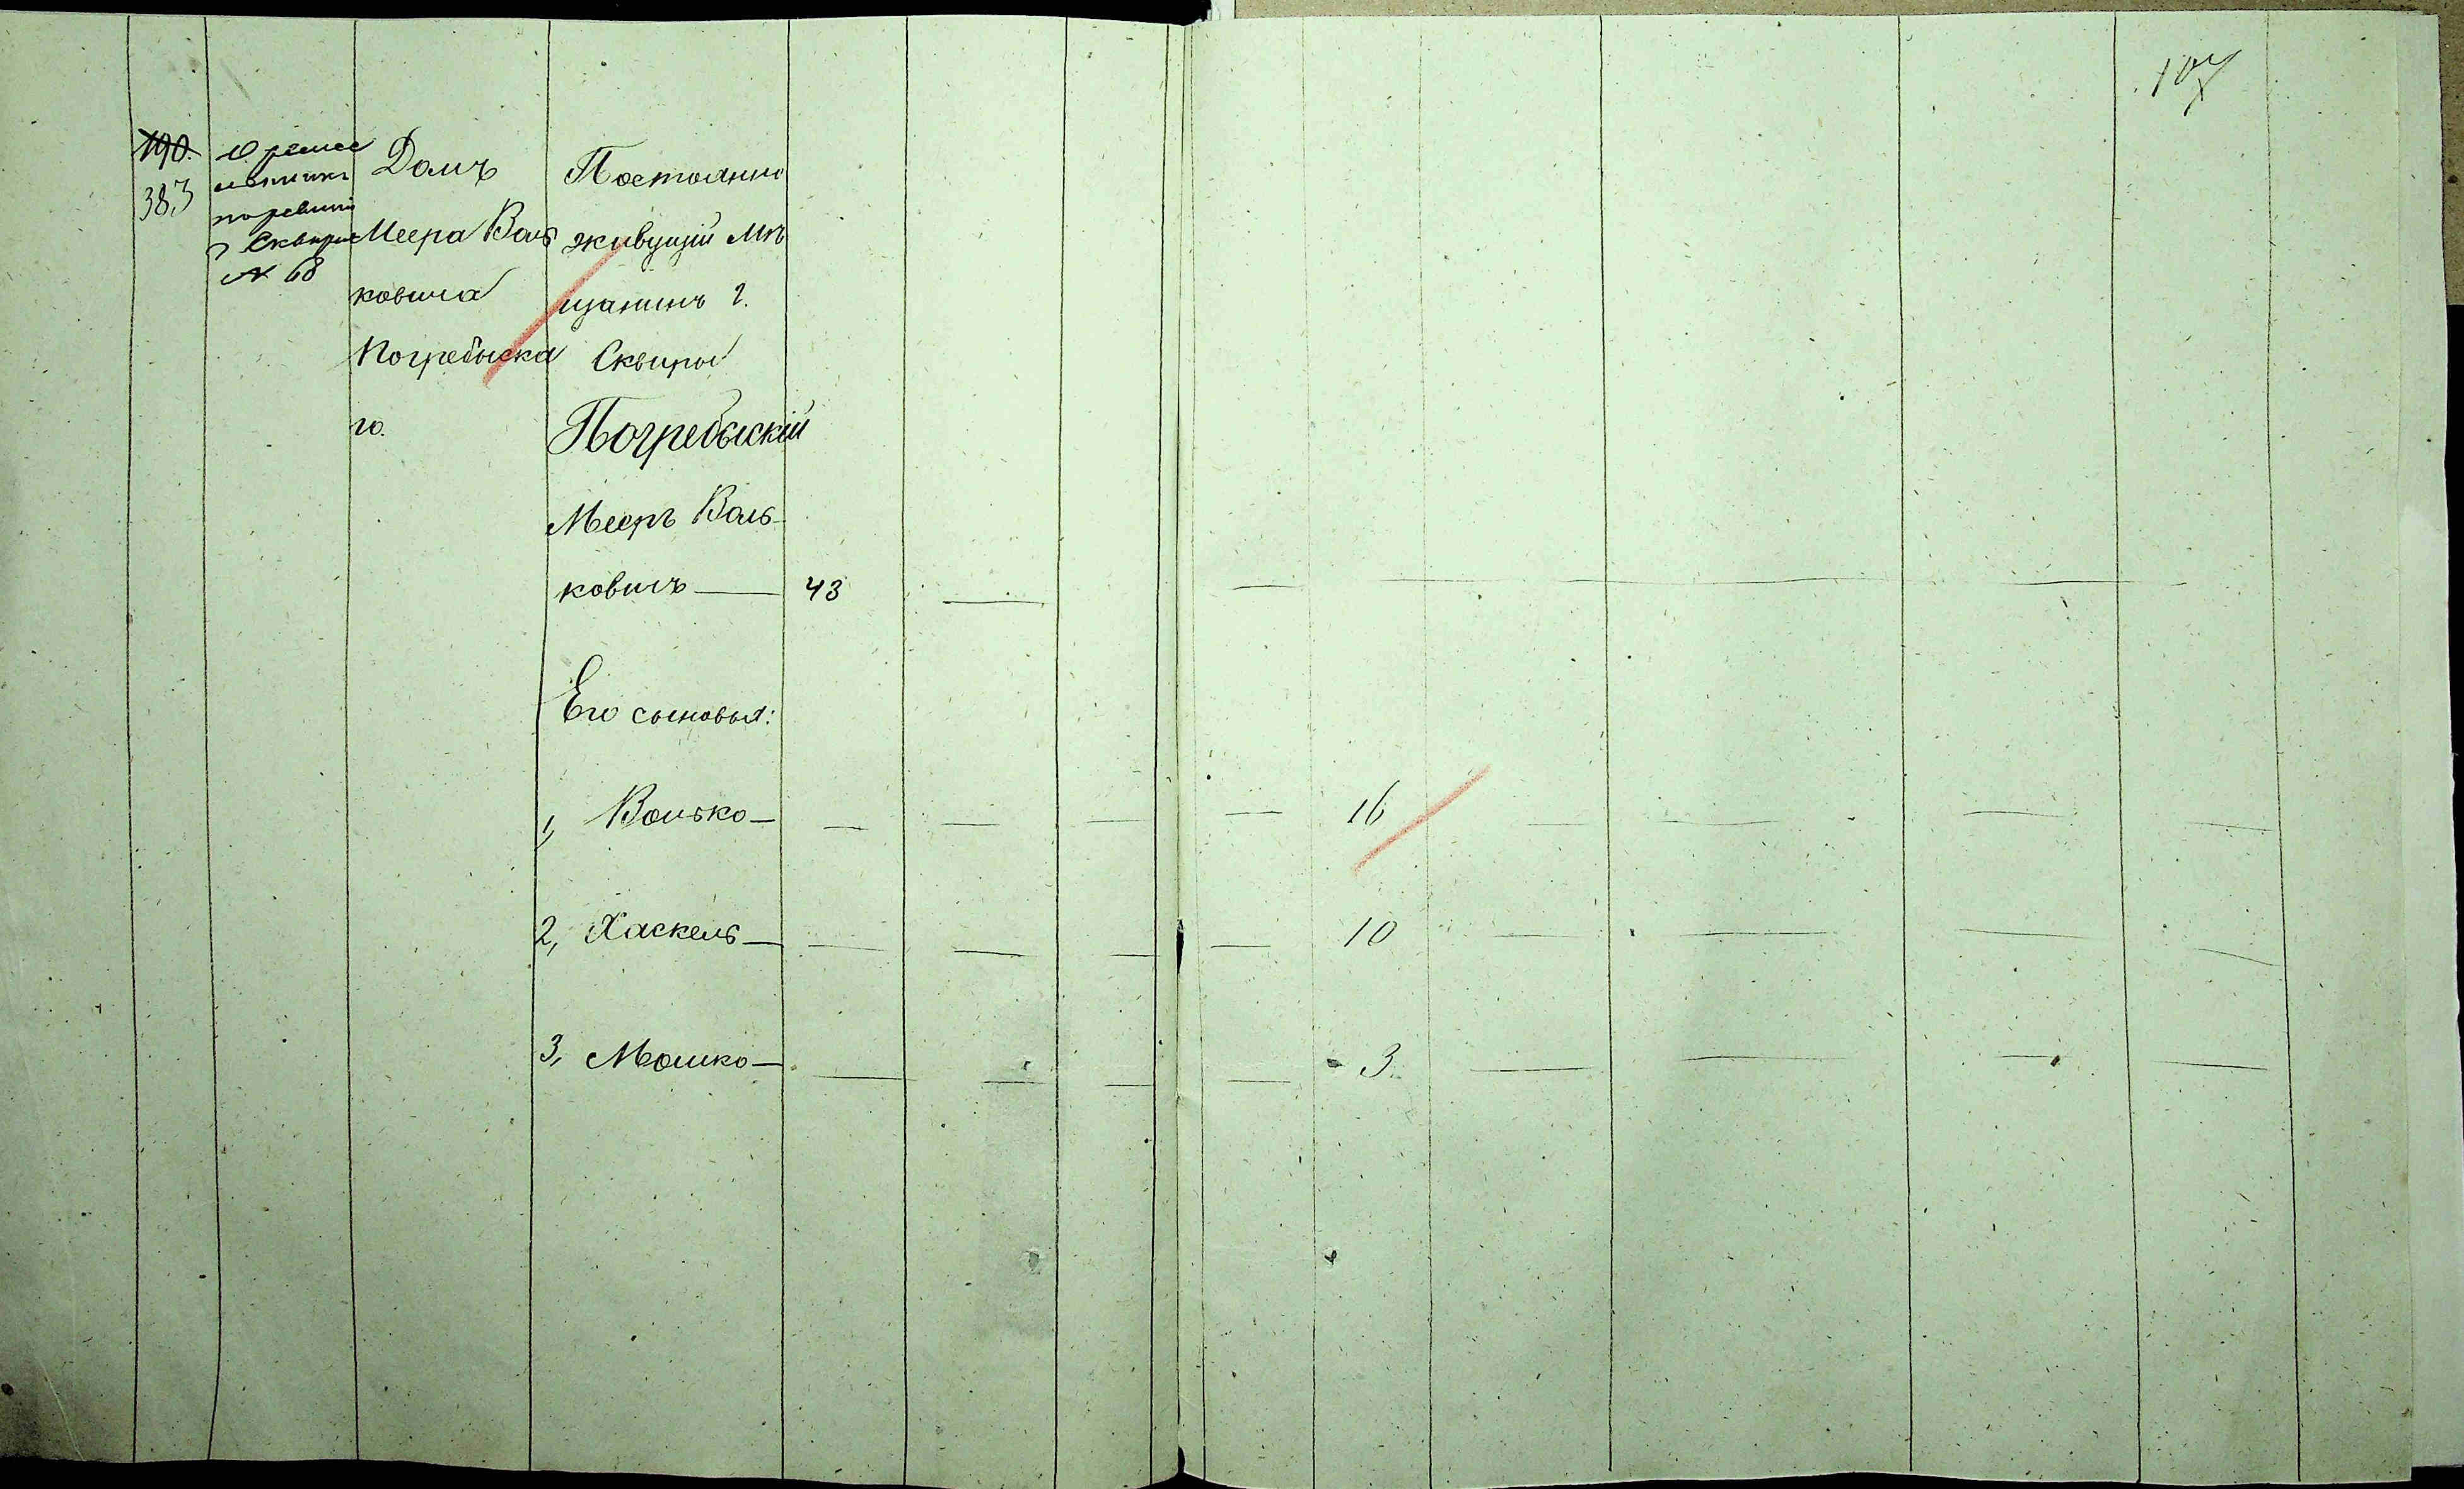 190.
383
О ремес
ленники
по ревизіи
г Сквиры
№ 68
Домъ
Меера Воль
ковича
Погребыска
го.
Постоянно
живущій Мѣ
щанинъ г.
Сквиры
Погребыскій
Мееръ Воль-
ковичъ — 43 —
Его сыновья:
1, Волько — 16
2, Хаскель — 10
3, Мошко — 3